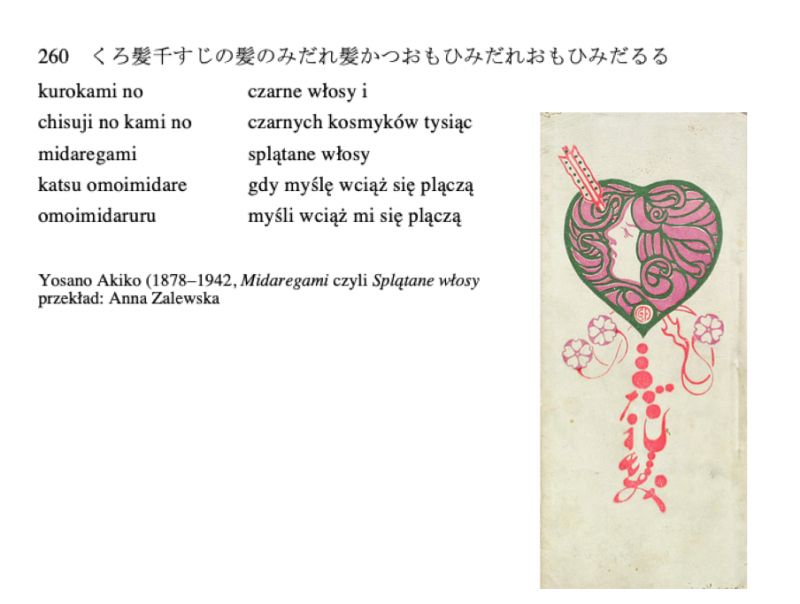 260 くろ髪千すじの髪のみだれ髪かつおもひみだれおもひみだるる
kurokami no czarne włosy i
chisuji no kami no czarnych kosmyków tysiąc
midaregami splątane włosy
katsu omoimidare gdy myślę wciąż się plączą
omoimidaruru myśli wciąż mi się plączą
Yosano Akiko (1878–1942, Midaregami czyli Splątane włosy
przekład: Anna Zalewska
みだれ髪